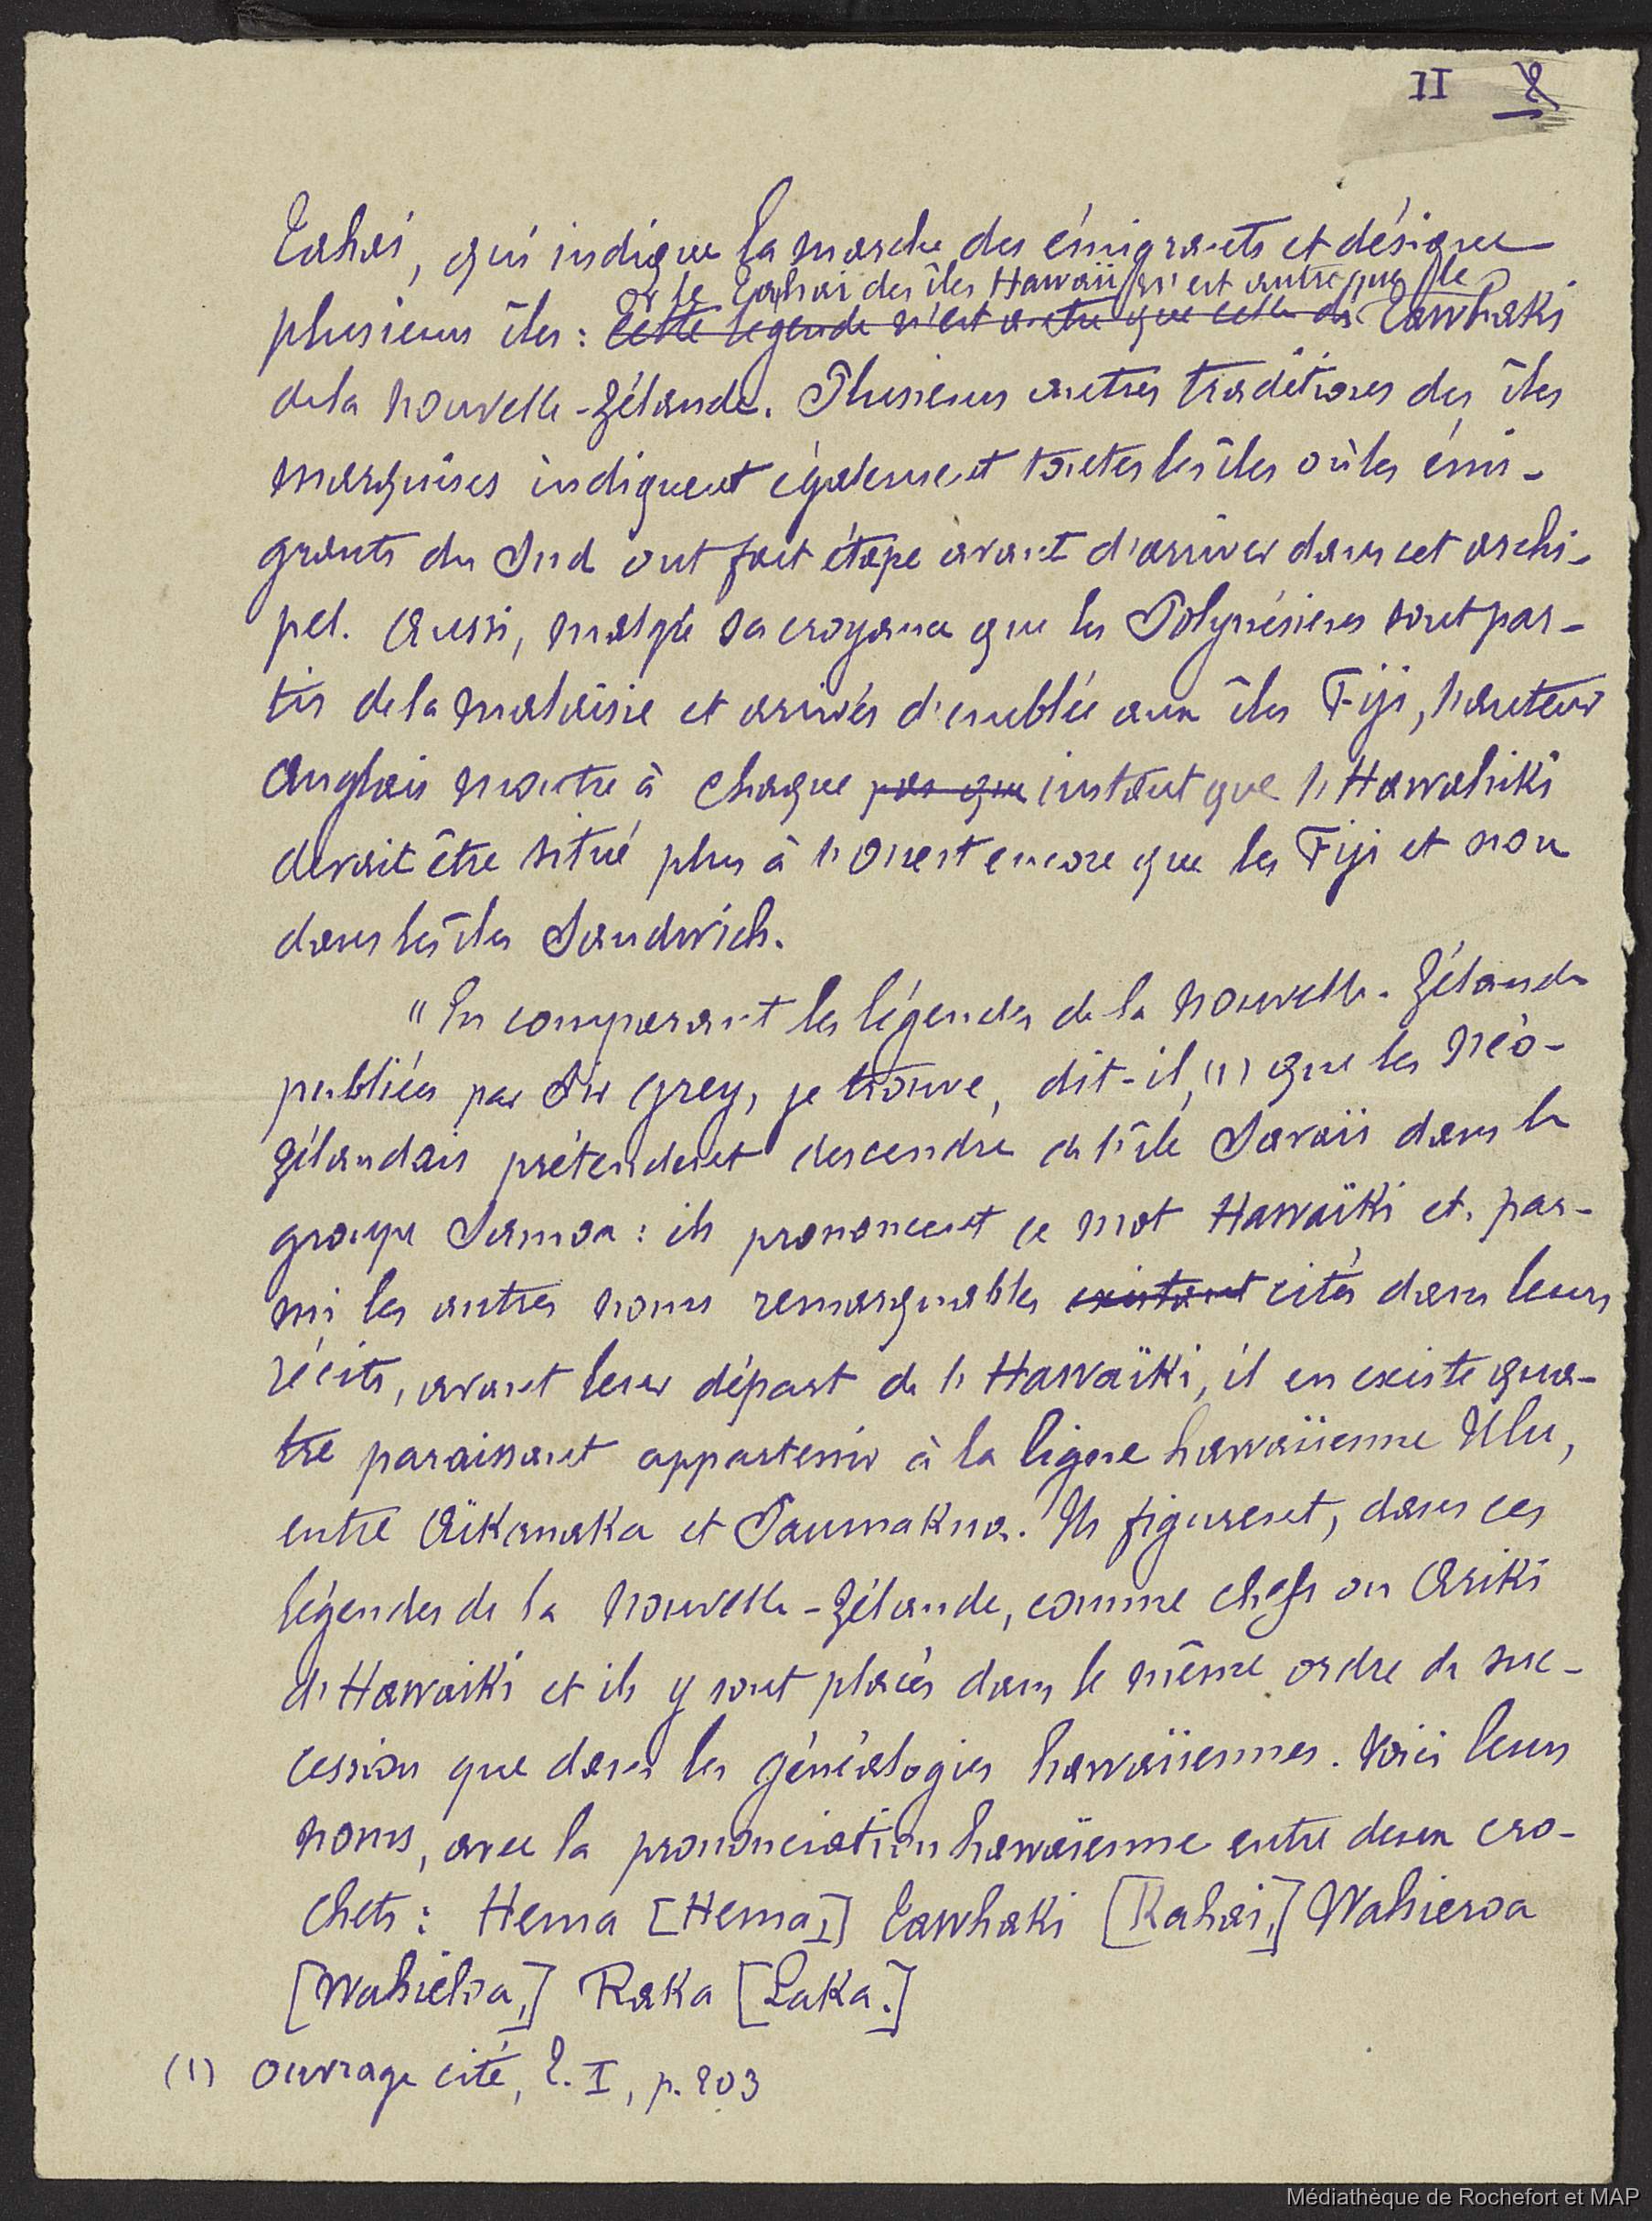 II 8
Tahai, qui indique la marche des émigrants et désigne
Or le Tahai des îles Hawaii n'est autre que le
plusieurs îles : Cette légende n'est autre que celle de Tawhaki
de la Nouvelle-Zélande. Plusieurs autres traditions des îles
Marquises indiquent également toutes les îles où les émi-
grants du Sud ont fait étape avant d'arriver dans cet archi-
pel. Aussi, malgré sa croyance que les Polynésiens sont par-
tis de la Malaisie et arrivés d'emblée aux îles Fiji, l'auteur
Anglais montre à chaque pas que instant que l'Hawahiki
devait être situé plus à l'Ouest encore que les Fiji et non
dans les îles Sandwich.
"En comparant les légendes de la Nouvelle-Zélande
publiées par Sir Grey, je trouve, dit-il, (1) que les Néo-
Zélandais prétendent descendre de l'île Savaii dans le
groupe Samoa : ils prononcent ce mot Hawaïki et, par-
mi les autres noms remarquables existant cités dans leurs
récits, avant leur départ de l'Hawaïki, il en existe qua-
tre paraissant appartenir à la ligne hawaiienne Ulu,
entre Aïkanaka et Paumakua. Ils figurent, dans ces
légendes de la Nouvelle-Zélande, comme chefs ou Ariki
d'Hawaiki et ils y sont placés dans le même ordre de suc-
cession que dans les généalogies hawaiiennes. Voici leurs
noms, avec la prononciation hawaïenne entre deux cro-
chets : Hema [Hema,] Tawhaki [Kahai,] Wahieroa
[Wahieloa,] Raka [Laka.]
(1) Ouvrage cité, T. I, p. 203
Médiathèque de Rochefort et MAP